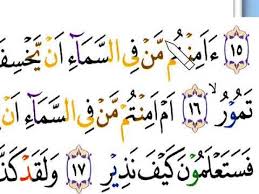 ١٥ ءَاَمِنْتُمْ مَّنْ فِي السَّمَآءِ اَنْ يَّخْسِفَ
تَمُوْرُ ۙ ١٦ اَمْ اَمِنْتُمْ مَّنْ فِي السَّمَآءِ اَنْ
فَسَتَعْلَمُوْنَ كَيْفَ نَذِيْرِ ١٧ وَلَقَدْ